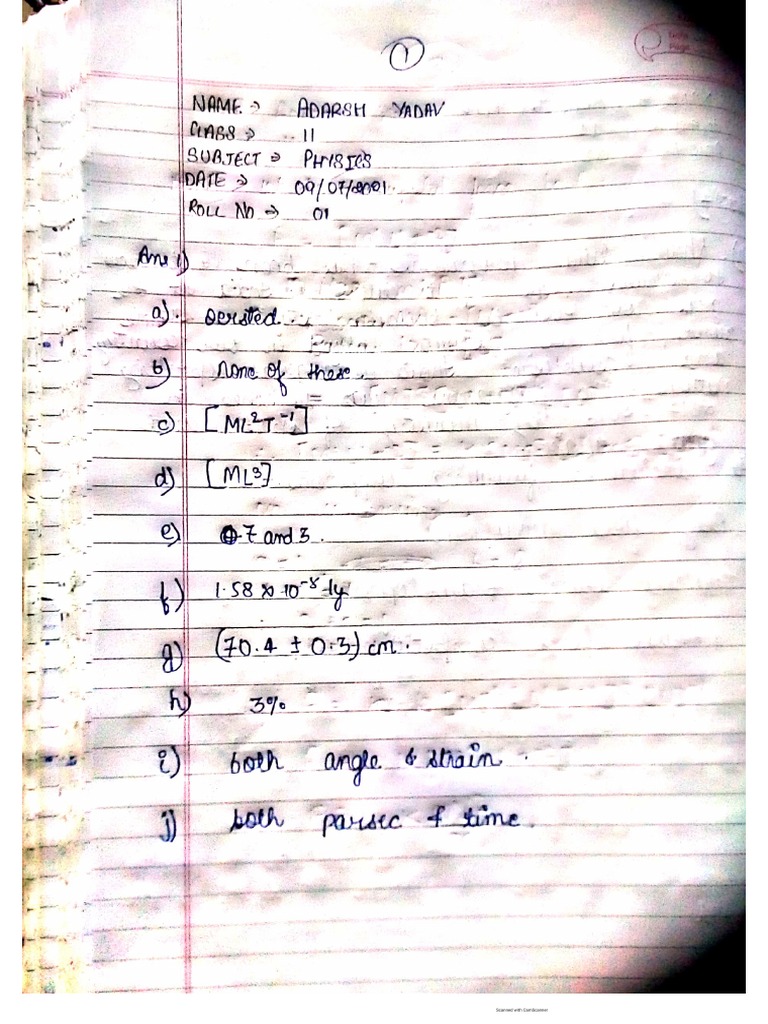 1
NAME → ADARSH YADAV
CLASS → 11
SUBJECT → PHYSICS
DATE → 09/07/2001
ROLL NO → 01
Ans 1)
a). oersted.
b) None of these.
c) [ML²T⁻¹]
d) [ML³]
e) 7 and 3.
f) 1.58 × 10⁻⁵ ly
g) (70.4 ± 0.3) cm.
h) 3%
i) both angle & strain.
j) both parsec & time.
Scanned with CamScanner